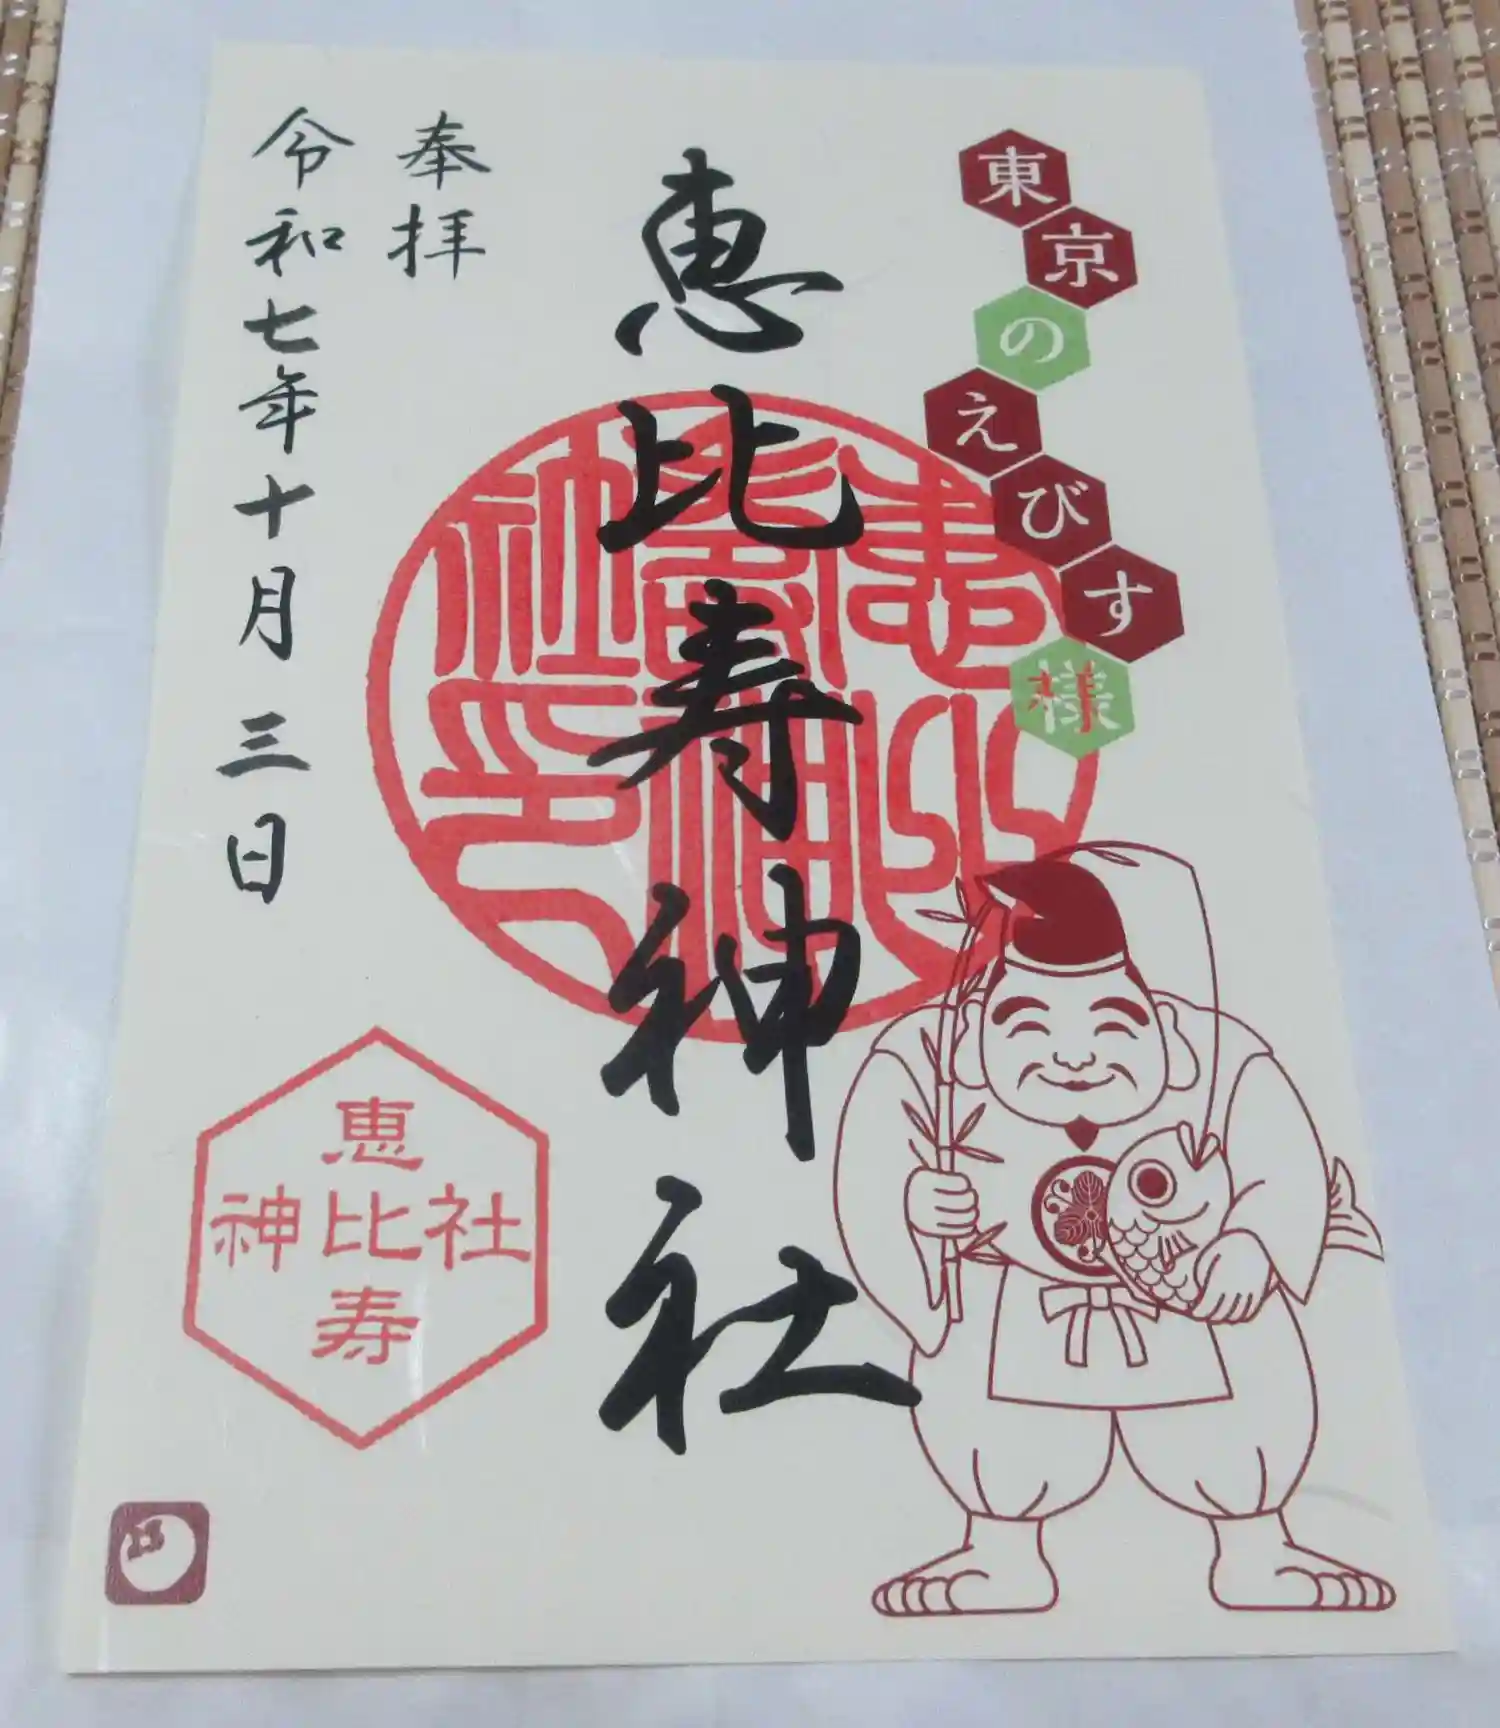 東京のえびす様
恵比寿神社
奉拝
令和七年十月三日
恵比寿神社印
恵比寿
神社